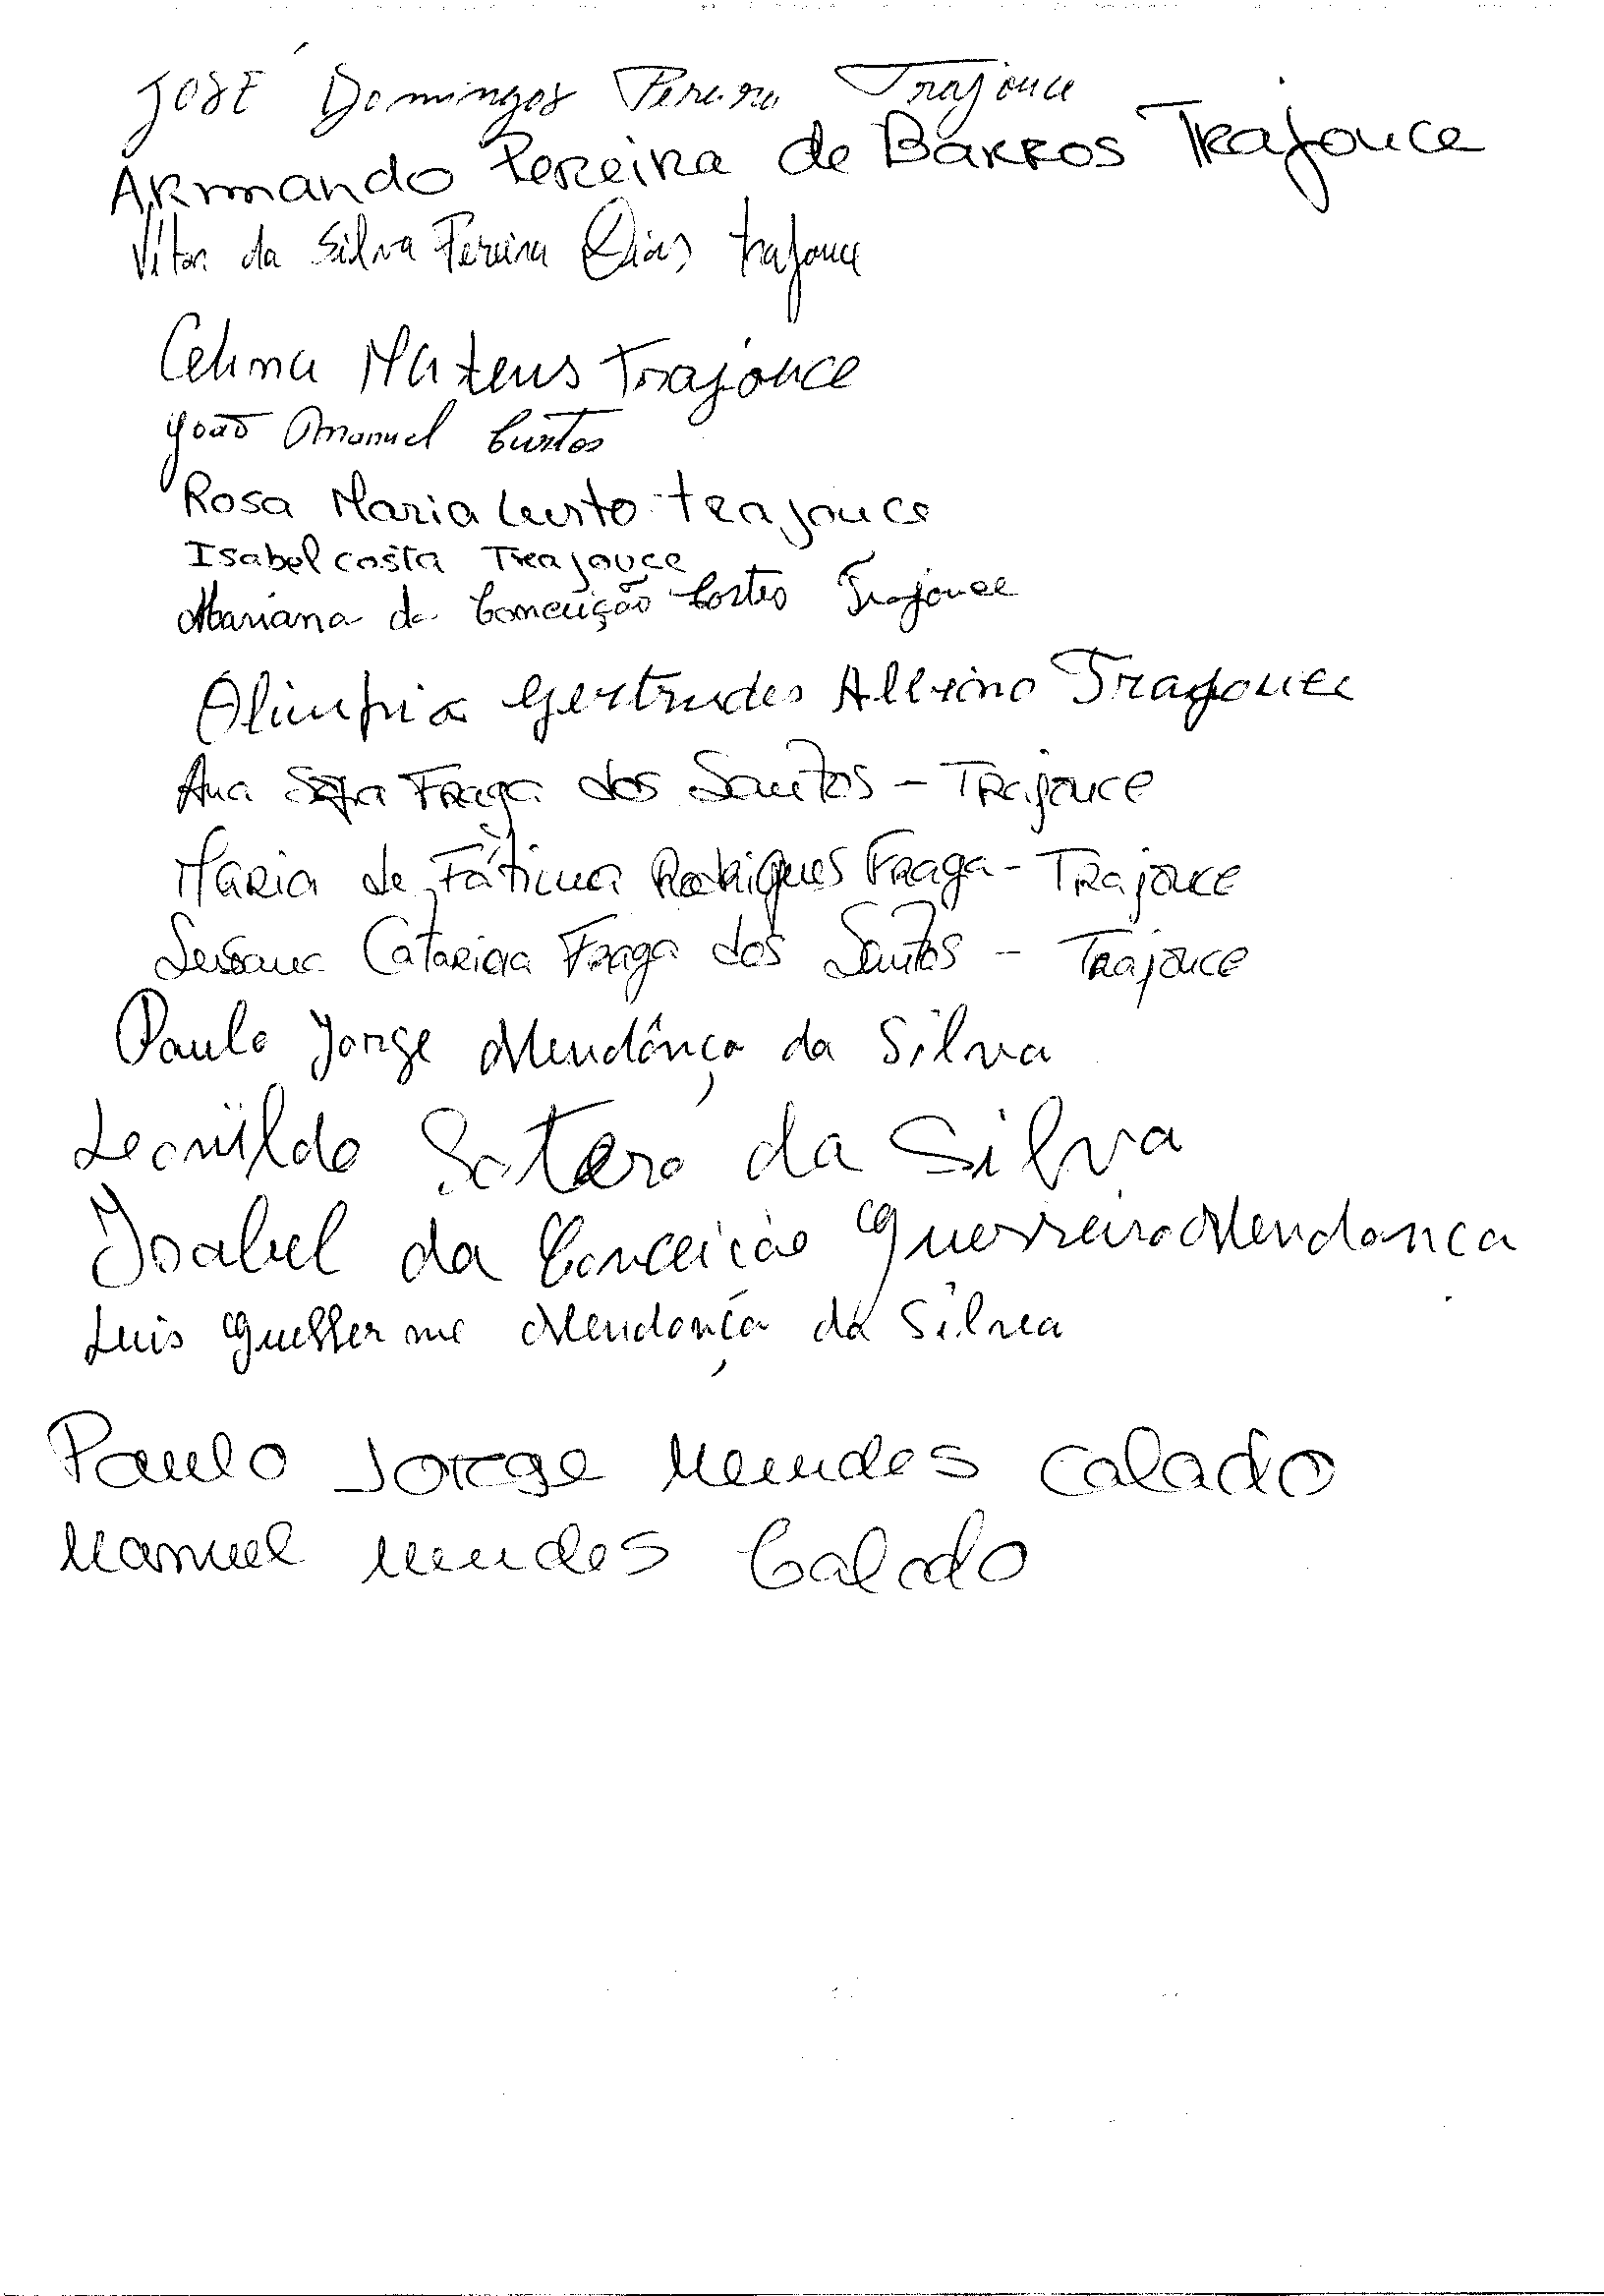 José Domingos Pereira Trajouce
Armando Pereira de Barros Trajouce
Vitor da Silva Pereira Dias Trajouce
Celina Mateus Trajouce
João Manuel Curtos
Rosa Maria Curto Trajouce
Isabel Costa Trajouce
Mariana da Conceição Cortes Trajouce
Olimpia Gertrudes Trajouce
Ana Sofia Fraga dos Santos - Trajouce
Maria de Fátima Rodrigues Fraga - Trajouce
Susana Catarina Fraga dos Santos - Trajouce
Paulo Jorge Mendônça da Silva
da Silva
Isabel da Conceicão Guerreiro Mendonca
Luis Guilherme Mendonça da Silva
Paulo Jorge Mendes Calado
Manuel Mendes Calado